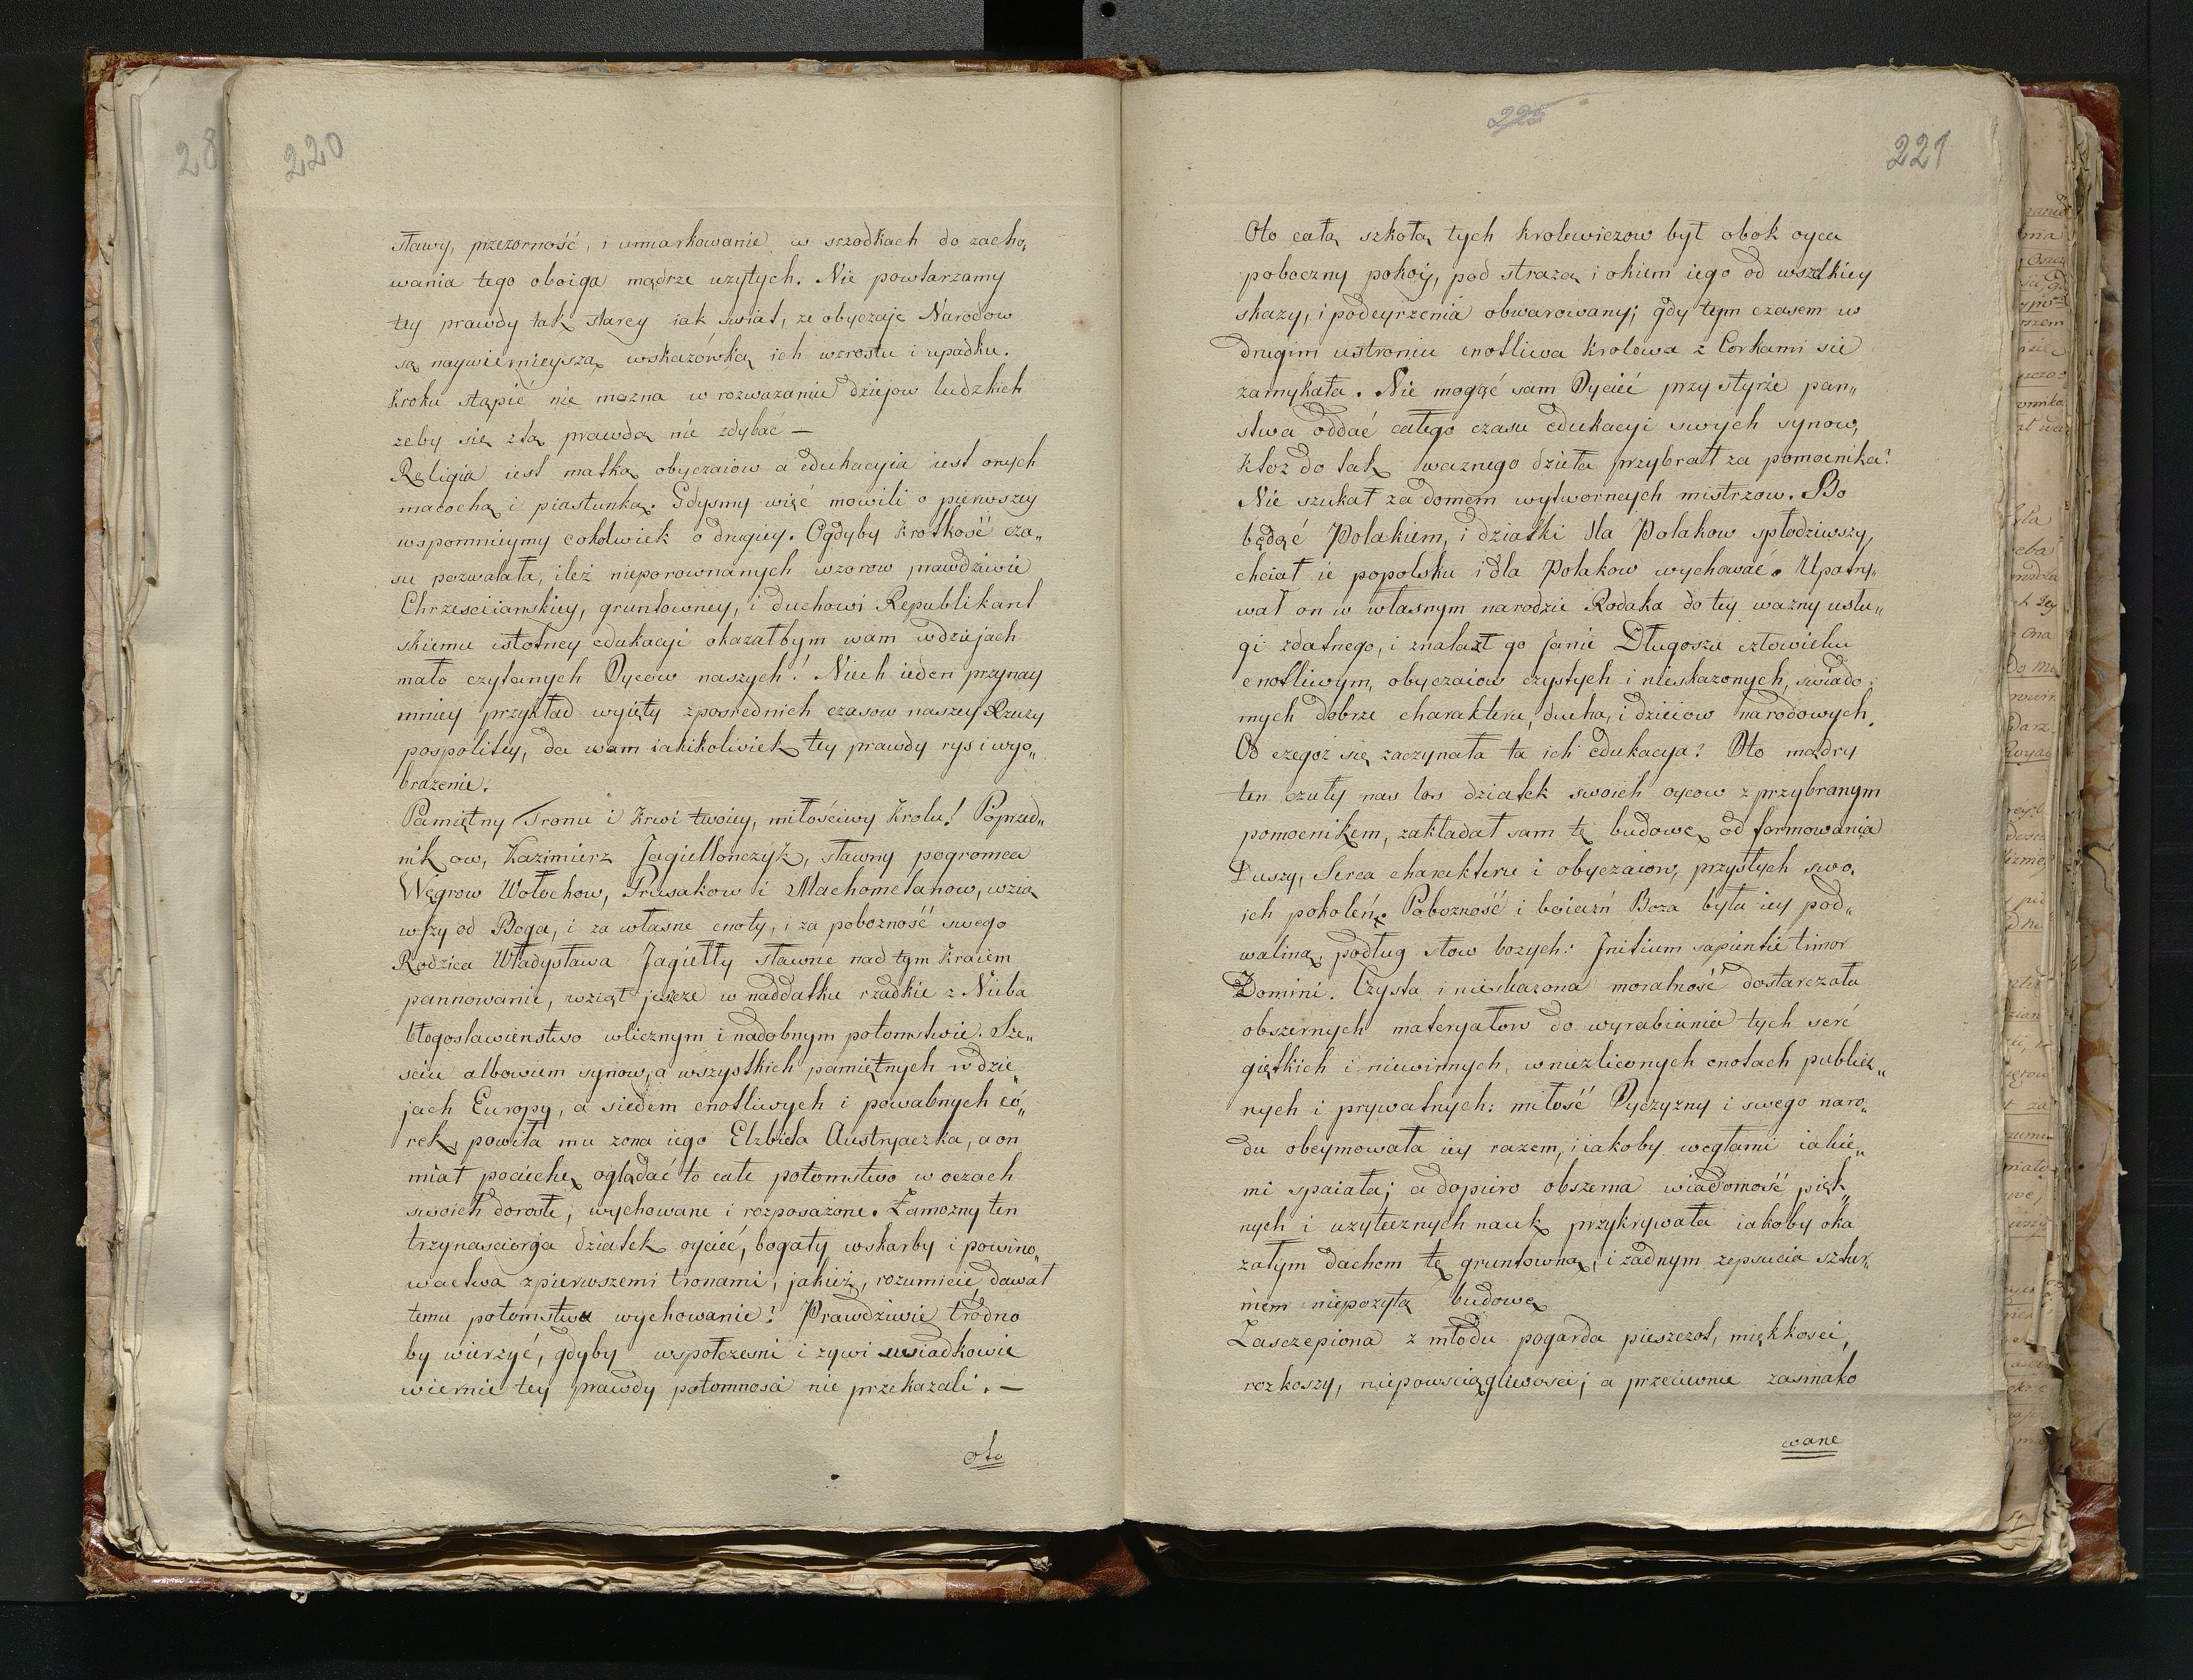 220
sławy, przezorność, i umiarkowanie w srzodkach do zacho„
wania tego oboiga mądrze uzytych. Nie powtarzamy
tey prawdy tak starey iak swiat, ze obyczaje Narodow
są naywiernieyszą wskazówką ich wzrostu i upadku.
Kroku stąpić nie mozna w rozwazaniu dziejow ludzkich
zeby się z tą prawdą nie zdybać —
Religia iest matką obyczaiow a edukacyia iest onych
macochą i piastunką. Gdysmy więc mowili o pierwszey
wspomnieymy cokolwiek o drugiey. Ogdyby krotkość cza„
su pozwalała, ileż nieporownanych wzorow prawdziwie
Chrzesciianskiey, gruntowney, i duchowi Republikant
skiemu istotney edukacyi okazałbym wam w dziejach
mało czytanych Oycow naszych! Niech ieden przynay
mniey przykład wyięty zposrednich czasow naszey Rzeczy
pospolitey, da wam iakikolwiek tey prawdy rys i wyo„
brazenie.
Pamiętny Tronu i Krwi twoiey, miłościwy Krolu! Poprzed„
nik ow, Kazimierz Jagiellończyk, sławny pogromca
Węgrow Wołochow, Prusakow i Machometanow, wzią
wszy od Boga, i za własne cnoty, i za pobozność swego
Rodzica Władysława Jagiełły sławne nad tym Kraiem
pannowanie, wziął jescze w naddatku rzadkie z Nieba
błogosławienstwo w licznym i nadobnym potomstwie. Sze„
sciu albowiem synow, a wszystkich pamiętnych w dzie„
jach Europy, a siedem cnotliwych i powabnych có„
rek, powiła mu zona iego Elzbieta Austryaczka, a on
miał pociechę oglądać to całe potomstwo w oczach
swoich dorosłe, wychowane i rozposażone. Zamozny ten
trzynasciorga dziatek oyciec, bogaty w skarby i powino„
wactwa z pierwszemi tronami, jakież, rozumiecie, dawał
temu potomstwu wychowanie? Prawdziwie trodno
by wierzyć, gdyby wspołczesni i zywi swiadkowie
wiernie tey prawdy potomnosci nie przekazali. —
oto
221
Oto całą szkołą tych krolewiczow był obok oyca
poboczny pokoy, pod strazą i okiem iego od wszelkiey
skazy, i podeyrzenia obwarowany; gdy tym czasem w
drugim ustroniu cnotliwa Krolowa z Corkami sie
zamykała. Nie mogąc sam Oyciec przy styrze pan„
stwa oddać całego czasu edukacyi swych synow,
Ktoz do tak waznego dzieła przybrał za pomocnika?
Nie szukał za domem wytwornych mistrzow. Bo
będąc Polakiem, i dziatki dla Polakow spłodziwszy,
chciał ie popolsku i dla Polakow wychować. Upatry„
wał on w własnym narodzie Rodaka do tey wazny usłu„
gi zdatnego, i znalazł go Janie Długoszu człowieku
cnotliwym, obyczaiow czystych i nieskazonych, swiado„
mych dobrze charakteru, ducha, i dzieiow narodowych.
Od czegoz się zaczynała ta ich edukacya? Oto mądry
ten czuły nas los dziatek swoich oycow z przybranym
pomocnikem, zakładał sam tę budowę od formowania
Duszy, Serca charakteru i obyczaiow, przyszłych swo„
ich pokoleń. Pobozność i boiazń Boza była iey pod„
waliną, podług słow bozych: Initium sapientie timor
Domini. Czysta i nieskazona moralność dostarczała
obszernych materyałow do wyrabiania tych serć
giętkich i niewinnych, w niezliczonych cnotach publicz„
nych i prywatnych: miłość Oyczyzny i swego naro„
du obeymowała iey razem, i iakoby węgłami iakie„
mi spaiała; a dopiero obszerna wiadomość pięk„
nych i uzytecznych nauk przykrywała iakoby oka
załym dachem tę gruntowną, i żadnym zepsucia sztur„
mem niepozytą budowę
Zasczepiona z młodu pogarda piesczot, miękkosci,
rozkoszy, niepowsciągliwosci; a przeciwnie zasmako
wane